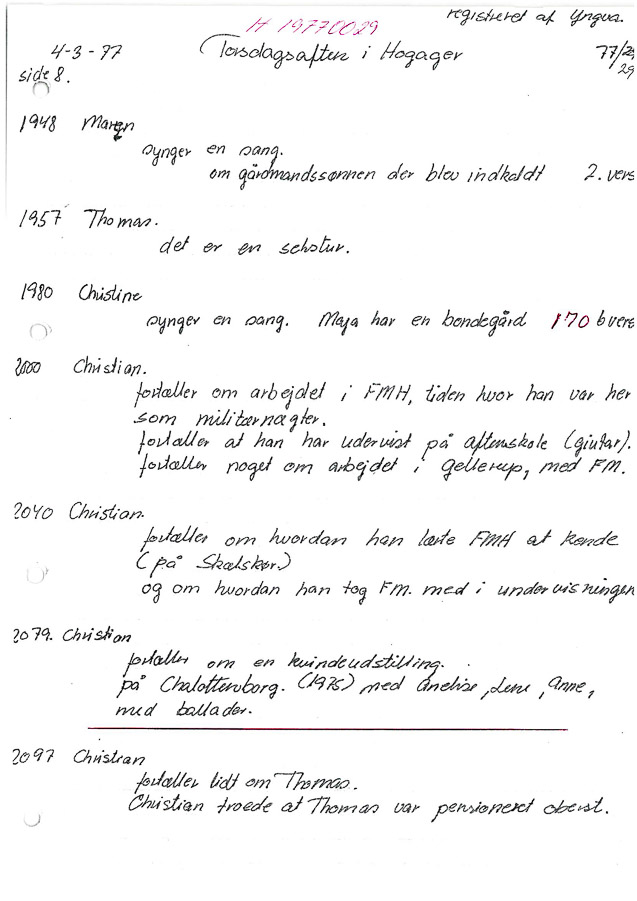 H 19770029
registreret af Yngva.
4-3-77 Torsdagsaften i Hogager 77/29
29
side 8.
1948 Maren
synger en sang.
om gårdmandssønnen der blev indkaldt 2. vers
1957 Thomas.
det er en schotur.
1980 Christine
synger en sang. Maja har en bondegård 170 6 vers
2000 Christian.
fortæller om arbejdet i FMH, tiden hvor han var her
som militærnægter.
fortæller at han har udervist på aftenskole (giutar).
fortæller noget om arbejdet i Gellerup, med FM.
2040 Christian.
fortæller om hvordan han lærte FMH at kende
(på Skælskør)
og om hvordan han tog FM. med i undervisningen
2079. Christian
fortæller om en kvindeudstilling.
på Chalottenborg. (1975) med Anelise, Lene, Anne,
med ballader.
2097 Christian
fortæller lidt om Thomas.
Christian troede at Thomas var pensioneret oberst.